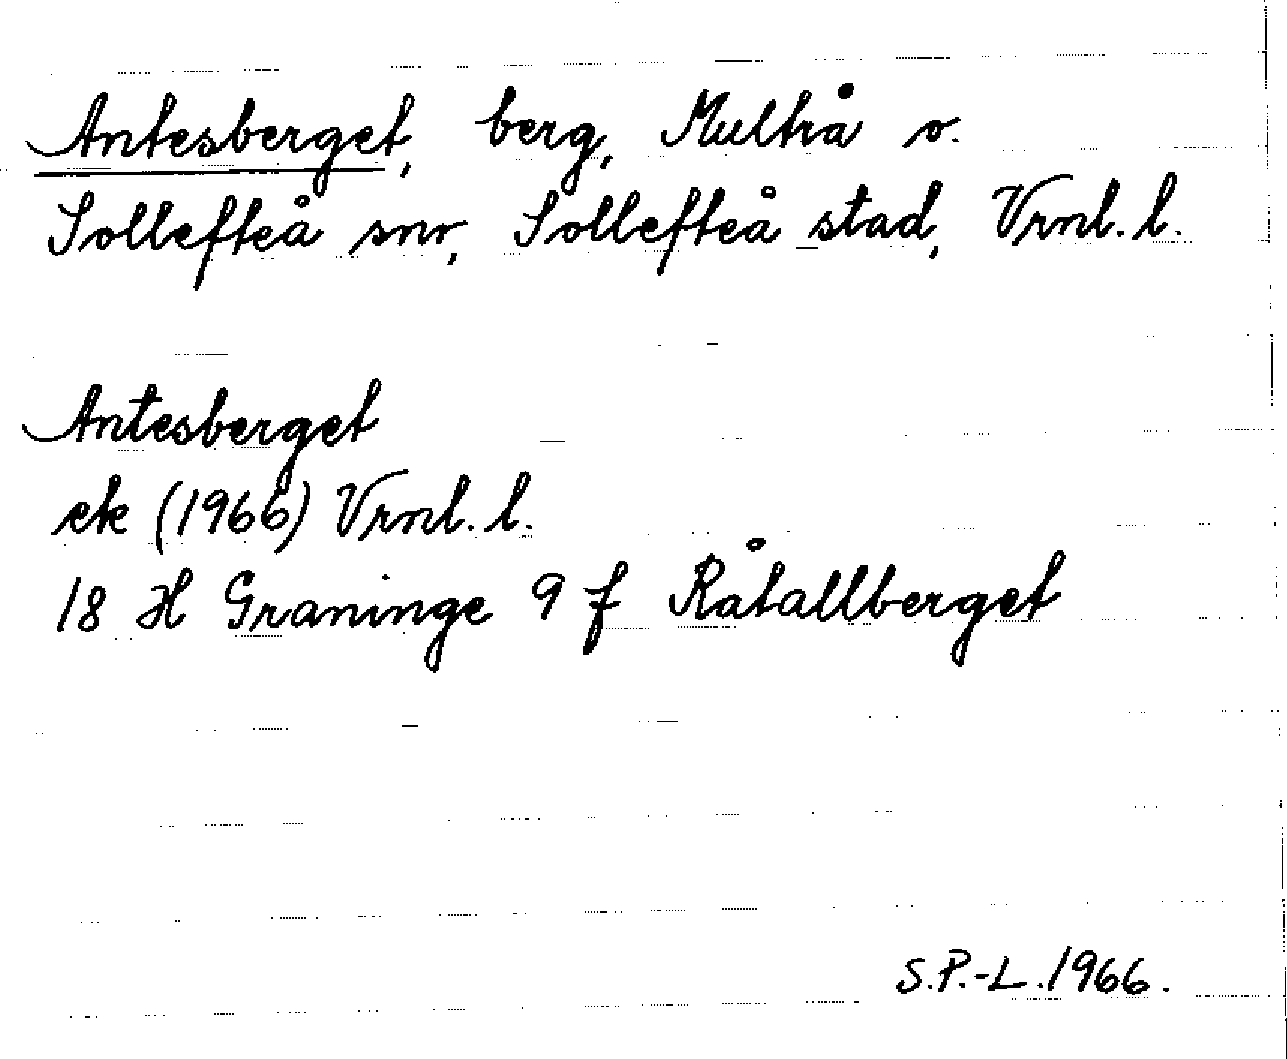 Antesberget, berg, Multrå s.
Sollefteå snr, Sollefteå stad, Vrnl. l.
Antesberget
ek (1966) Vrnl. l.
18 H Graninge 9 f Råtallberget
S.P.-L. 1966.